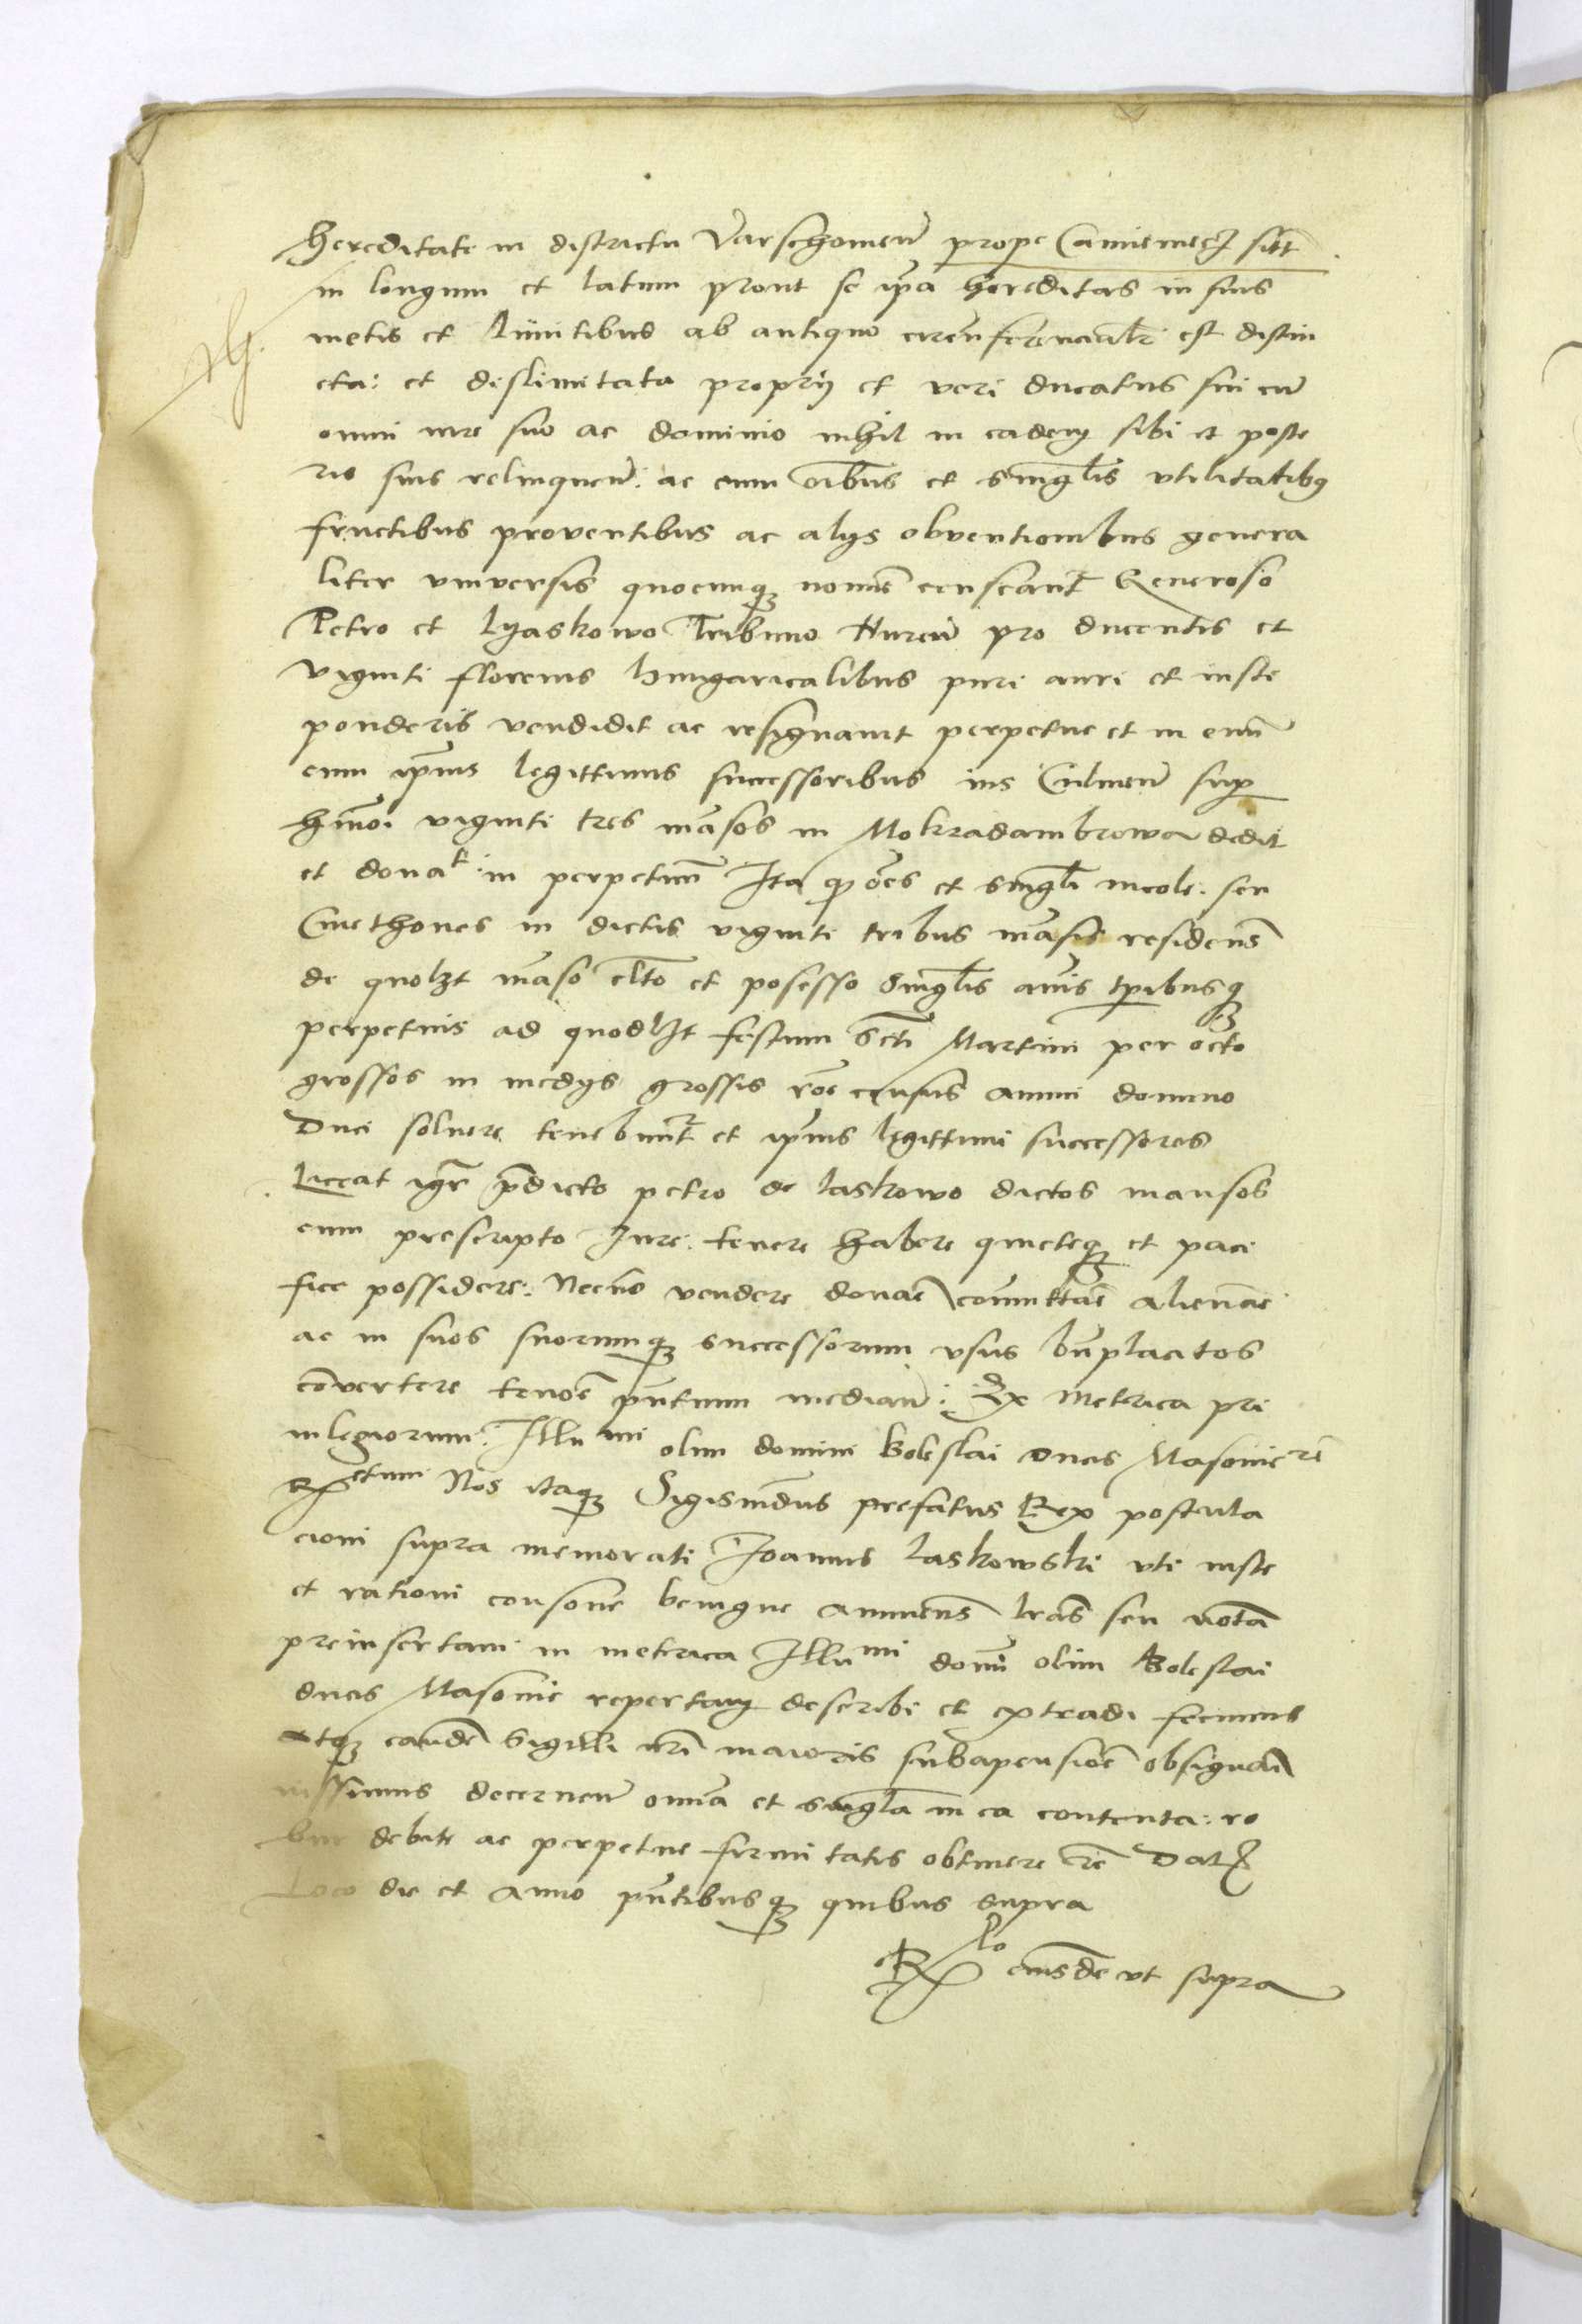 hereditate in districtu Varschowien̄ prope Camiemecz sitt
in longum et latum prout se ip̄a hereditas in suis
metis et limitibus ab antiquo circūferencialr̄ est distin
cta: et dislimitata proprij et veri ducatus sui cū
omni iure suo ac dominio nihil in eadem sibi et poste
ris suis relinquen̄: ac cum oībus et singl̄is vtilitatibꝫ
fructibus proventibus ac alijs obventionibus genera
liter vniversis quocunqꝫ nomīe censeant̄ Generoso
Petro et Lyaskowo Tribuno Nuren̄ pro ducentis et
viginti florenis hungaricalibus puri auri et iuste
ponderis vendidit ac resignavit perpetue et in evū
cum ip̄ius legittimis successoribus ius Culmen̄ sup
hmōi viginti tres māsos in Mokradambrowa dedit
et donat in perpetuū Ita qꝫ ōes et singl̄i incole: seu
Cmethones in dictis viginti tribus māsis residen̄s
de quolꝫt māso cl̄to et posesso singl̄is anis tp̄ribusqꝫ
perpetuis ad quodlꝫt festum Scti Martini per octo
grossos in medijs grossis rōe census annui domino
Duci solvere tenebunt̄ et ip̄ius legittimi successores
Liceat igr̄ p̄dicto petro de laskowo dictos mansos
cum prescripto Iure tenere habere quieteqꝫ et paci
fice possidere: Necnō vendere donaē comuttaē alienaē
ac in suos suorumqꝫ successorum vsus bn̄placitos
cōvertere tenoē pn̄tium median̄: Ex Metrica pri
vilegiorum Illu mi olim domini Boleslai Ducis Masovie re
Rx ctum Nos itaqꝫ Sigismūdus prefatus Rex postula
cioni supra memorati Ioannis Laskowski vti iuste
et rationi consone benigne annuen̄s lr̄as seu notā
preinsertam in metrica Illu mi domī olim Boleslai
ducis Masovie repertam describi et extradi fecimus
atqꝫ eandē sigilli nr̄i maioris subapensiōe obsignari
iussimus decernen̄ omnia et singl̄a in ea contenta: ro
bur debite ac perpetue firmitatis obtinere dēre Datꝫ
Loco die et Anno pn̄tibusqꝫ quibus supra
Rx lo eiusdē vt supra